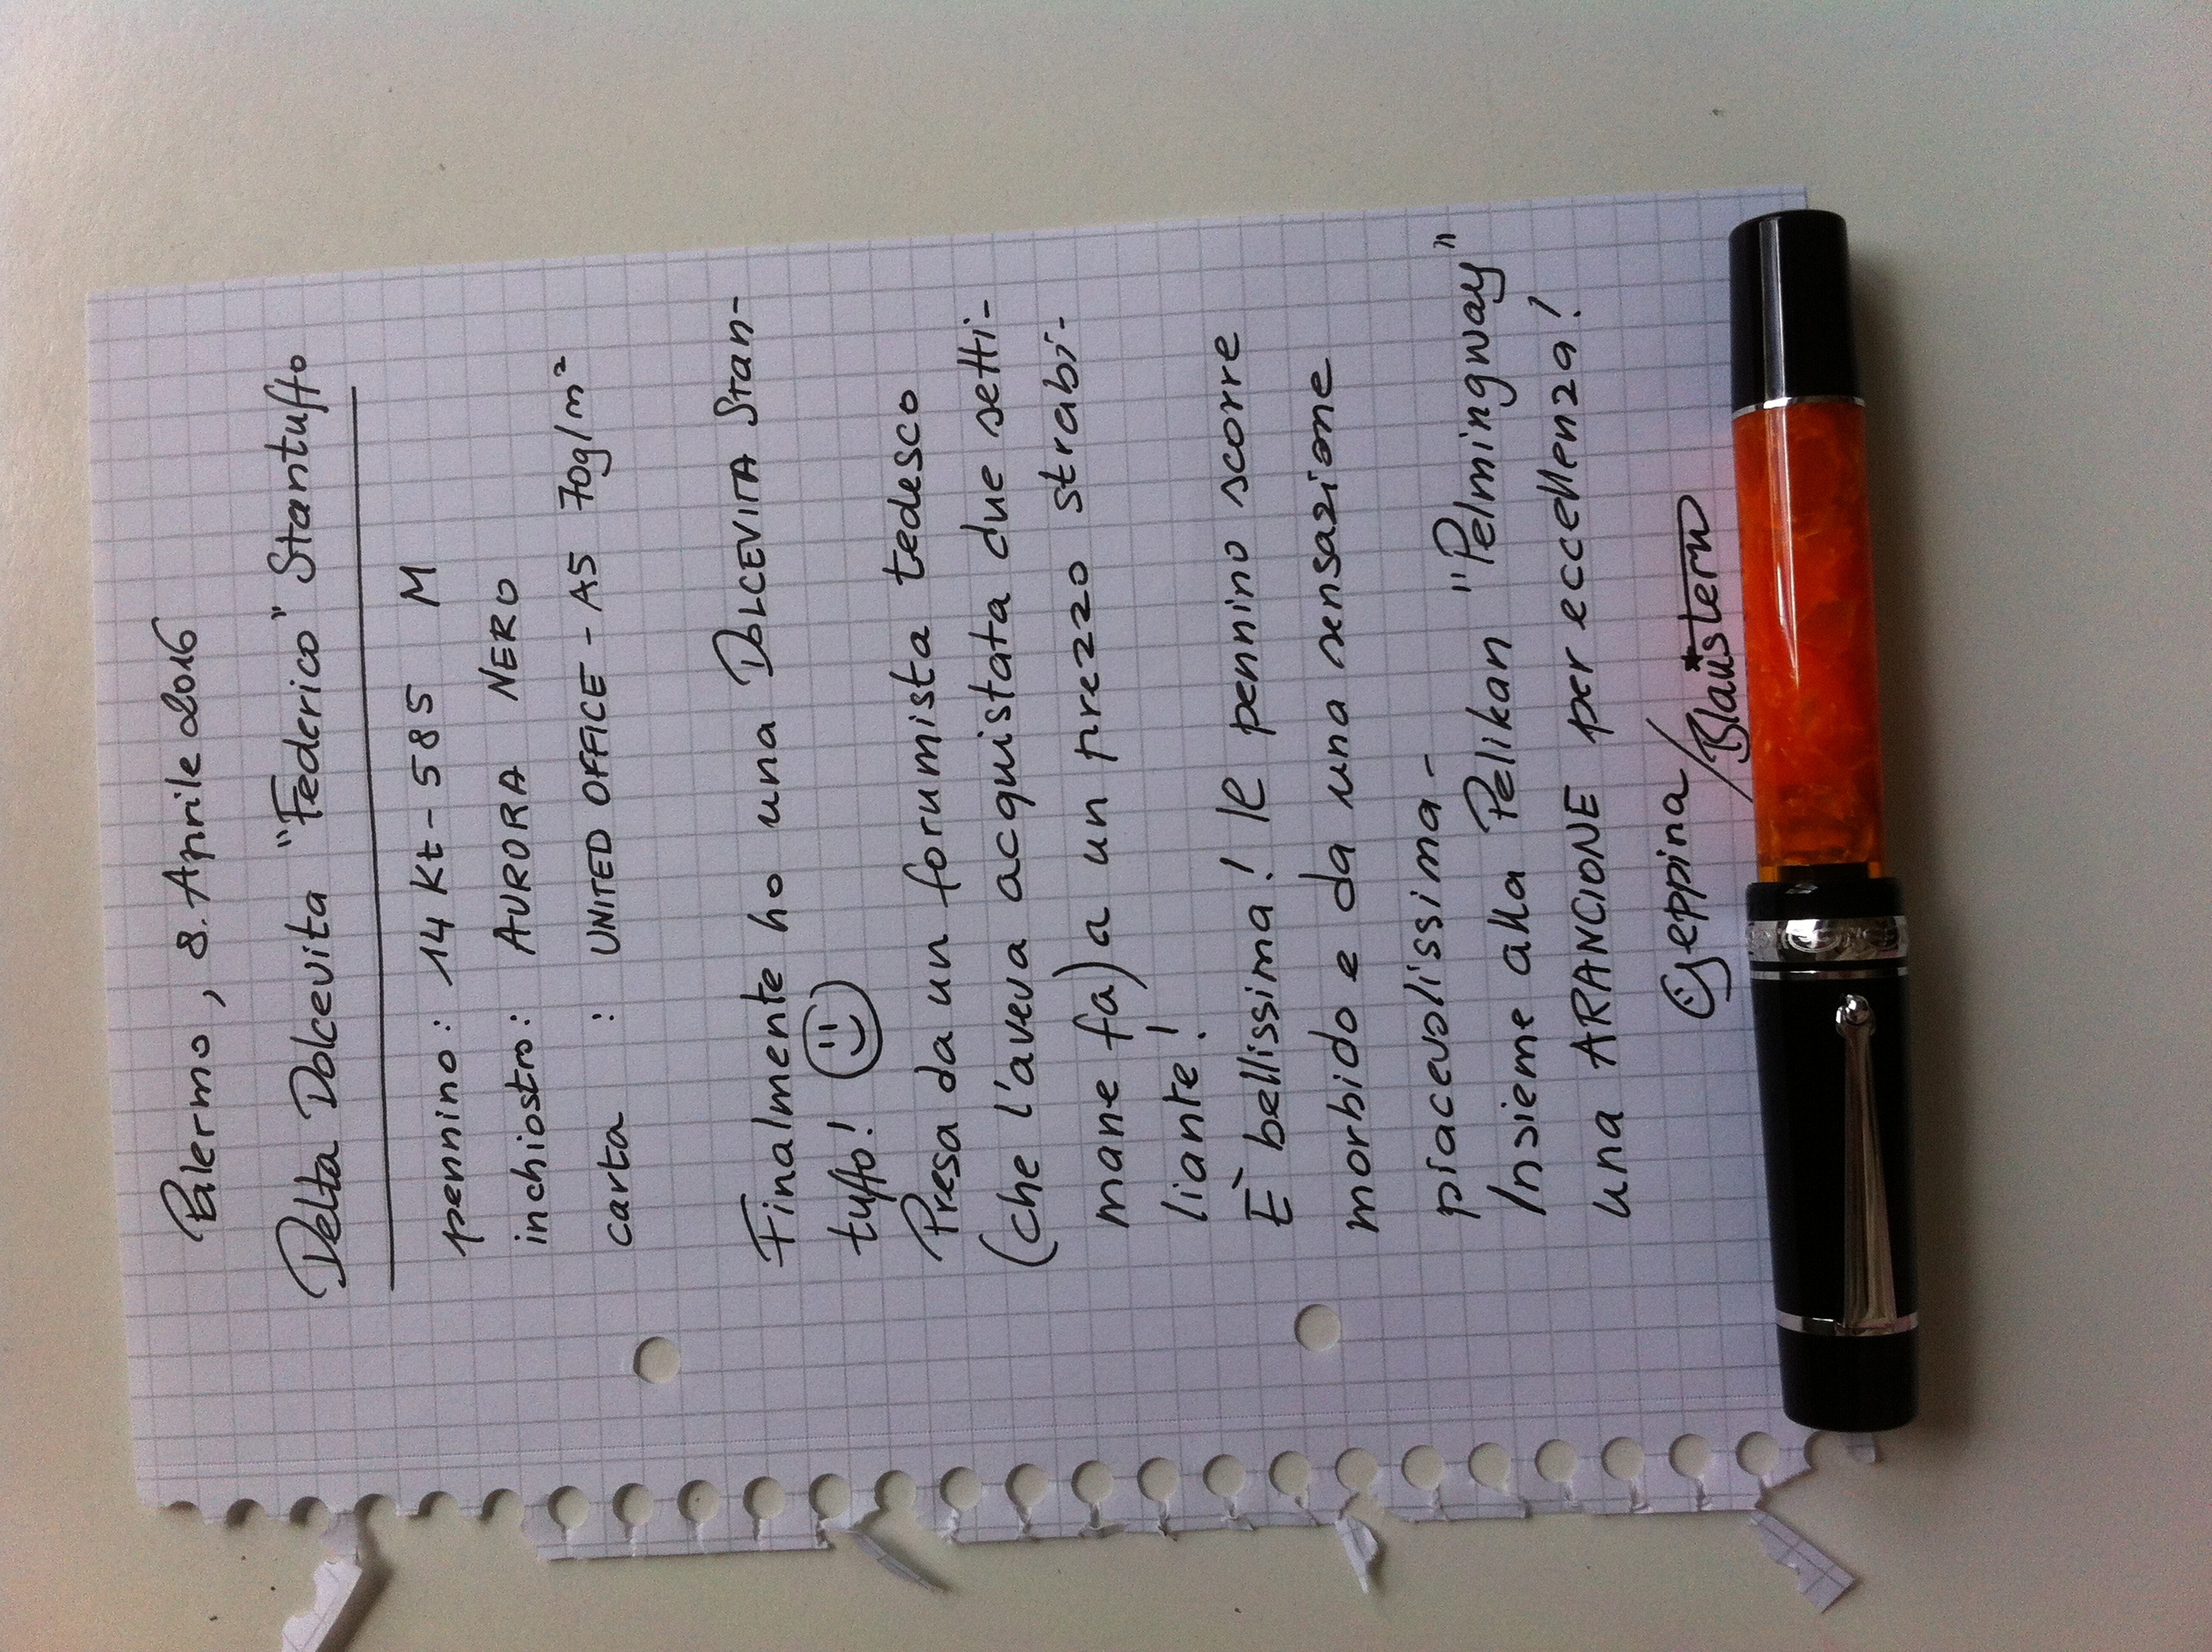 Palermo, 8. Aprile 2016
Delta Dolcevita "Federico" Stantuffo
pennino: 14 Kt - 585 M
inchiostro: AURORA NERO
carta : UNITED OFFICE - A5 70g/m²
Finalmente ho una DOLCEVITA Stan-
tuffo!
Presa da un forumista tedesco
(che l'aveva acquistata due setti-
mane fa) a un prezzo strabi-
liante!
È bellissima! Il pennino scorre
morbido e da una sensazione
piacevolissima-
Insieme alla Pelikan "Pelmingway"
una ARANCIONE per eccellenza!
Geppina
/Blaustern